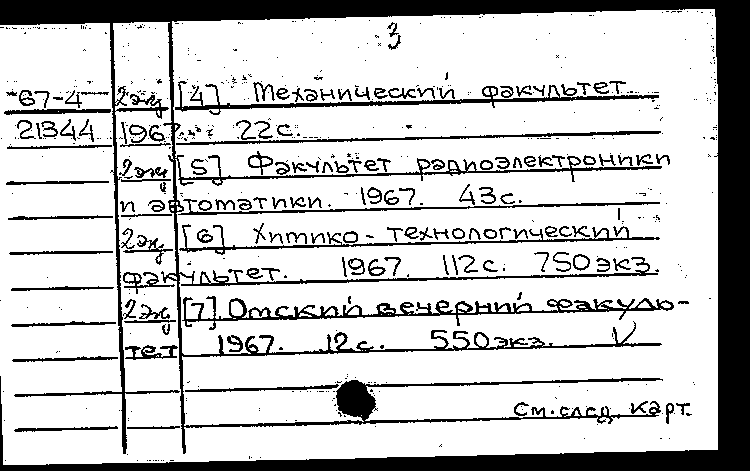 3
67-4 2эк [4]. Механический факультет
21344 1967. 22с.
2эк [5]. Факультет радиоэлектроники
и автоматики. 1967. 43с.
2эк [6]. Химико-технологический
факультет. 1967. 112с. 750экз.
2эк [7] Омский вечерний факуль-
тет 1967. 12с. 550экз. V
См. след. карт.